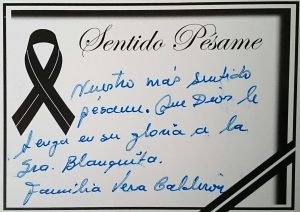 Sentido Pésame
Nuestro más sentido
pésame. Que Dios le
tenga en su gloria a la
Sra. Blanquita.
Familia Vera Calderón